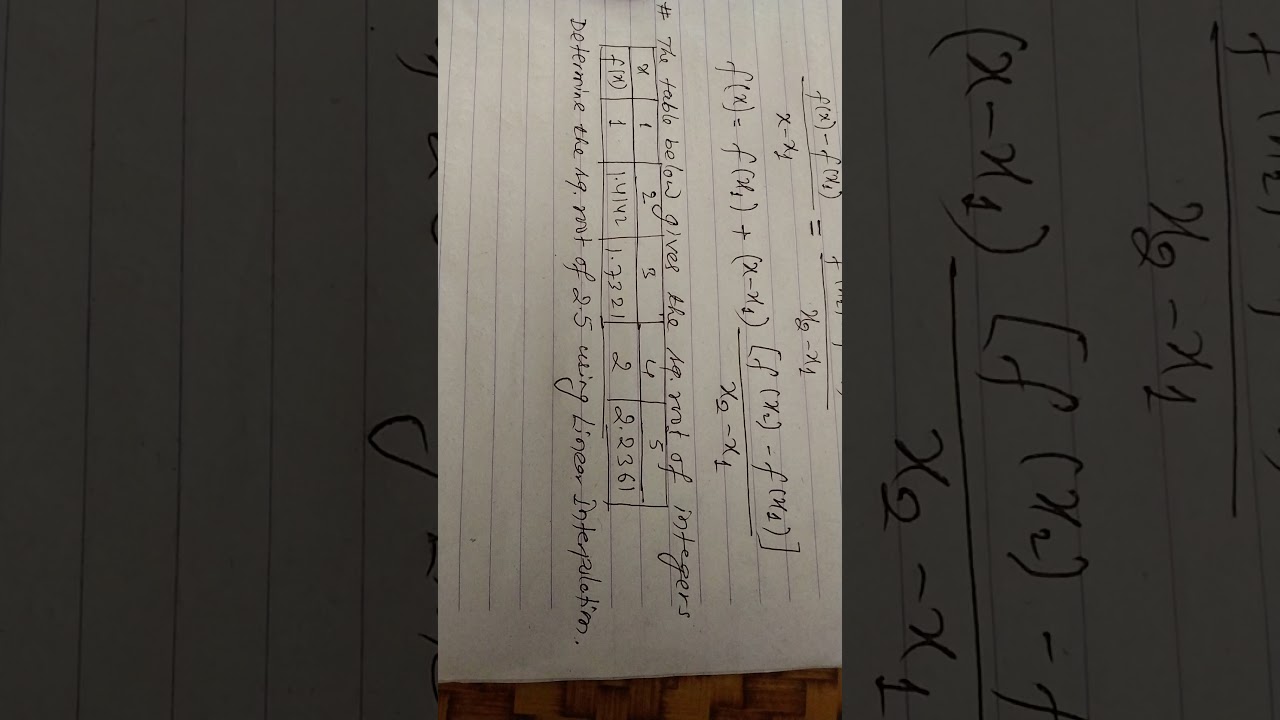 f(x) - f(x₁) / x - x₁ = f(x₂) / x₂ - x₁
f(x) = f(x₁) + (x - x₁) [f(x₂) - f(x₁)] / x₂ - x₁
# The table below gives the sq. root of integers
x 1 2 3 4 5
f(x) 1 1.4142 1.7321 2 2.2361
Determine the sq. root of 2.5 using Linear Interpolation.